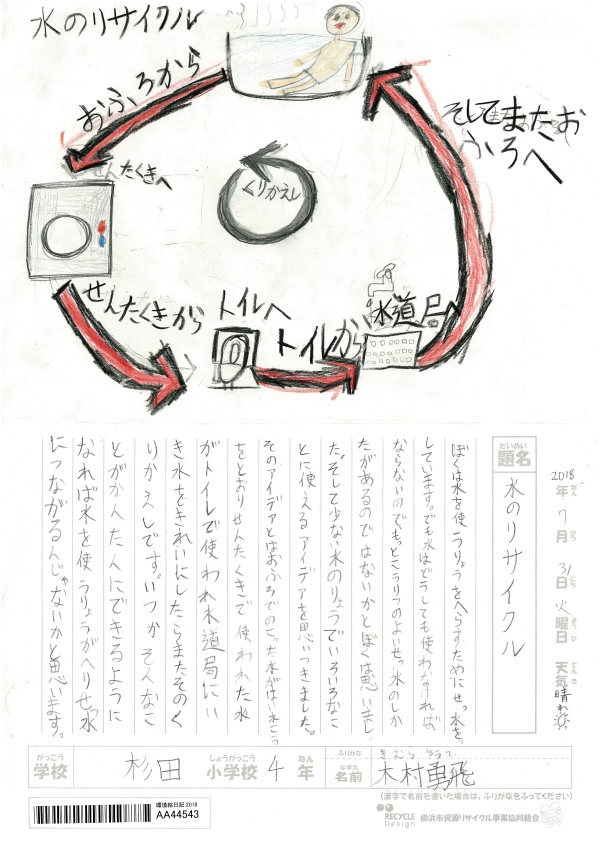 水のリサイクル
おふろから
せんたくきへ
くりかえし
そしてまたお
ふろへ
せんたくきから
トイレへ
トイレから
水道局へ
だいめい
題名
水のリサイクル
2018年ねん7月がつ31日にち火曜日ようび天気てんき晴れ
ぼくは水を使うりょうをへらすためにせっ水を
しています。でも水はどうしても使わなければ
ならないのでもっとこうりつのよいせっ水のしか
たがあるのではないかとぼくは思いまし
た。そして少ない水のりょうでいろいろなこ
とに使えるアイデアを思いつきました。
そのアイデアとはおふろでのこった水がはい水こう
をとおりせんたくきで使われた水
がトイレで使われ水道局にい
き水をきれいにしたらまたそのく
りかえしです。いつかそんなこ
とがかんたんにできるように
なれば水を使うりょうがへりせっ水
につながるんじゃないかと思います。
がっこう
学校
杉田
しょうがっこう
小学校
4
ねん
年
ふりがな
きむら ゆうひ
なまえ
名前
木村勇飛
(漢字で名前を書いた場合は、ふりがなをふってください)
環境絵日記 2018
AA44543
RECYCLE
Design
横浜市資源リサイクル事業協同組合